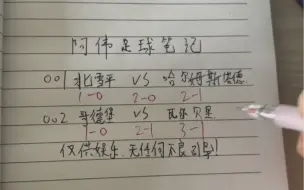 阿伟足球笔记
001 北雪平 VS 哈尔姆斯塔德
1-0 2-0 2-1
002 哥德堡 VS 瓦尔贝里
1-0 2-1 3-1
仅供娱乐 无任何不良引导!